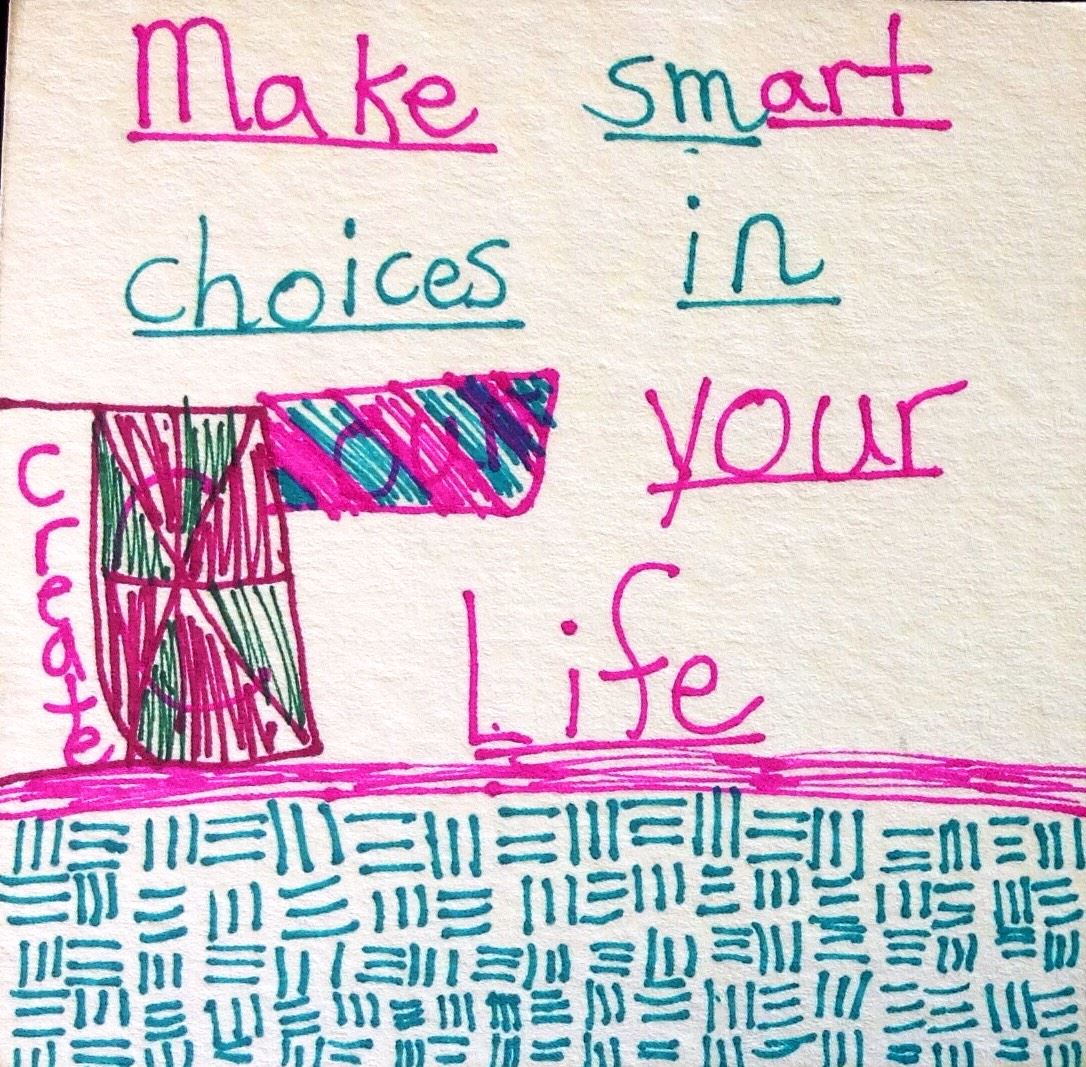 Make smart
choices in
your
Life
create